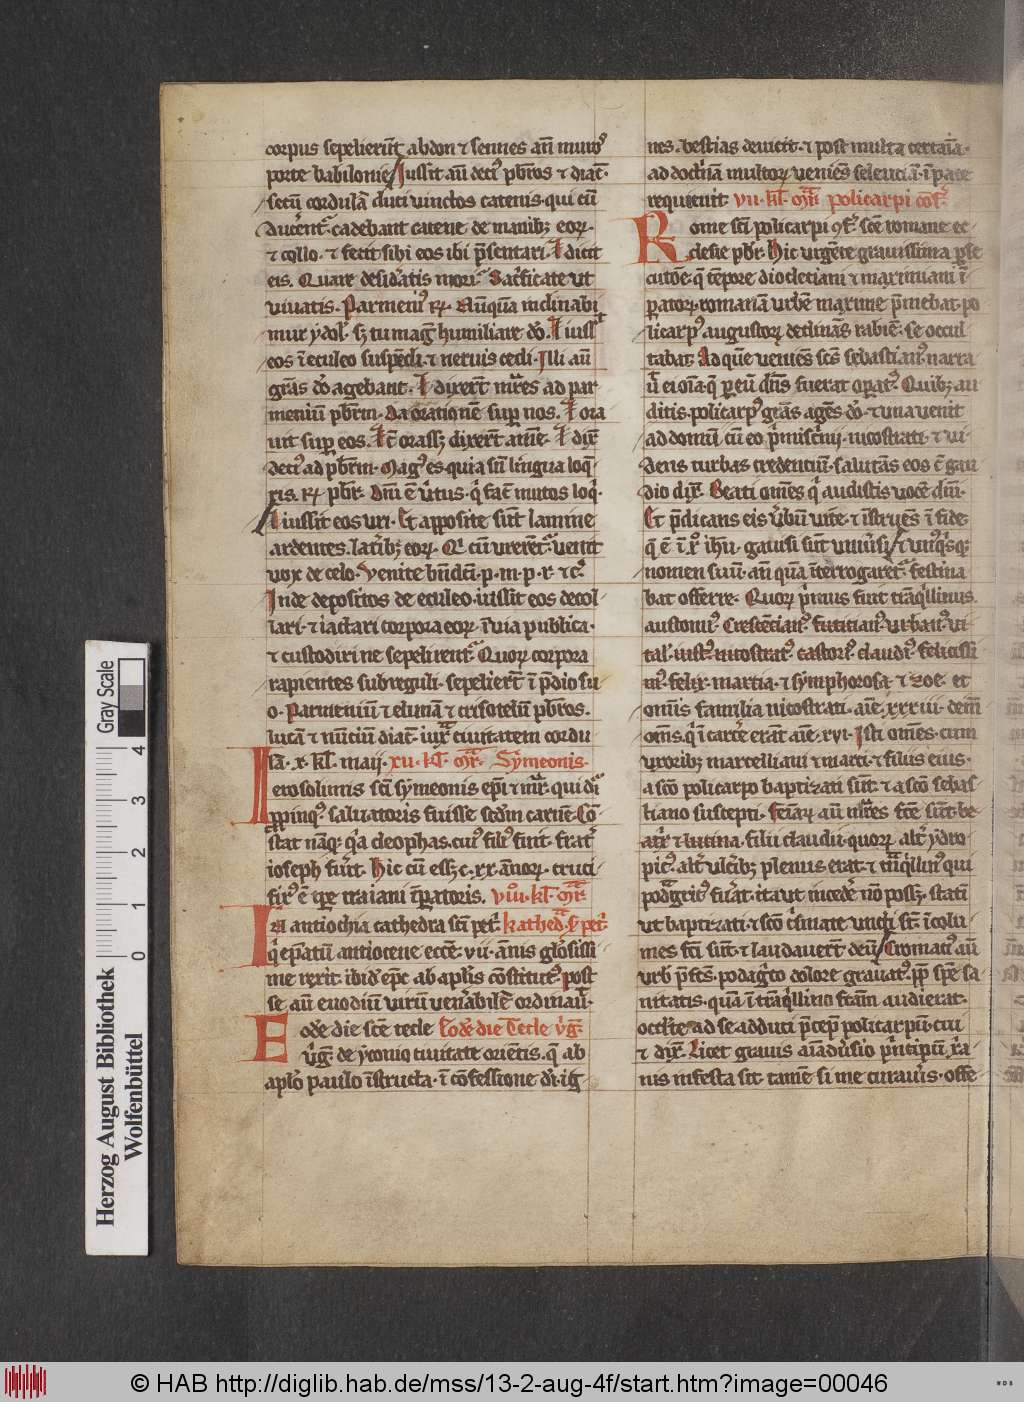 corpus sepelierūt abdon ⁊ sennes añ muros
porte babilonie Iussit aūt deciꝰ pb̄ros ⁊ diac̄
secū cordulā duci vinctos catenis qui cū
ducent̄ cadebant catene de manibꝫ eoꝝ
⁊ collo ⁊ fecit sibi eos ibi p̄sentari ⁊ dicit
eis. Quare desid̓atis mori Sac̓ficate ut
vivatis. Parmeniꝰ ꝶ Nūqua inclinabi
mur ydol̓ sꝫ tu mag̓ humiliare dō. Iussit
eos ī eculeo suspēdi ⁊ neruis cedi. Illi aūt
grās dō agebant. dixer̄t mr̄es ad par
meniū pb̄rm. Da orationē sup̱ nos. ora
uit sup̱ eos. orassꝫ dixer̄t amē. dix̄
deciꝰ ad pb̄rm. Magꝰ es quia sn̄ lingua loq̄
ris. ꝶ pb̄r. Dn̄i ē v̓tus q̓ fac̄ mutos loq̓.
iussit eos uri. Et apposite sūt lamine
ardentes. lat̓ibꝫ eoꝝ. cū vrerēt̄ venit
vox de celo. Venite bn̄dc̄i p. m. p. r. ⁊ c̄
Inde depositos de eculeo iussit eos decol
lari. ⁊ iactari corpora eoꝝ ī via publica
⁊ custodiri ne sepelirent̄ Quoꝝ corpora
rapientes subreguli sepelier̄t ī p̄dio su
o. Parmeniū ⁊ elimā ⁊ crisotelū pb̄ros.
lucā ⁊ muciū diac̄. iux̄ civitatem cordu
lā. x. kl̄. maij. xii. kl̄. mr̄. Symeonis.
Ierosolimis sc̄i symeonis ep̄i ⁊ mr̄. qui d̓r
p̱pinqꝰ saluatoris fuisse scd̄m carnē. Cō
stat nāqꝫ q̓a cleophas. cuiꝰ filiꝰ fuit. frat̓
ioseph fuit. Hic cū essꝫ. c. xx. annoꝝ. cruci
fixꝰ ē tp̄e traiani īp̱atoris. viii. kl̄. mr̄.
In antiochia cathedra sc̄i pet̓. Kathed̓. s̄. pet̓.
q̓ ep̄atū antiocene ecc̄e. vii. ānis glo̓sissi
me rexit. ibid ep̄c ab apl̄is cōstitutꝰ post
se aūt euodiū virū ven̓abilē ordinau̓.
Eode die sc̄e tecle Eodē die Tecle v̓g̓.
v̓g̓. de yconio civitate oriētis. q̄ ab
apl̓o paulo īstructa. ī cōfessione di̓ ig
nes. bestias deuicit. ⁊ post multa certaīa.
ad doct̓nam multoꝝ veniēs seleuciā ī pace
requieuit vii. kl̄. mr̄. policarpi cof̓.
Rome sc̄i policarpi ꝯf̓ sc̄e romane ec
clesie pb̄r. Hic urgēte gravissima p̱se
cutōe. q̄ tēpore diocletiani ⁊ maximiani ī
p̱atoꝝ. romanā urbē maxime p̄mebat. po
licarpꝰ augustoꝝ declinās rabiē. se occul
tabat. Ad quē veniēs sc̄s sebastianꝰ narra
v̓ ei oīa. q̄ p̱ eū dn̄s fuerat op̱atꝰ. Quibꝫ au
ditis. policarpꝰ grās agēs dō. ⁊ una venit
ad domū cū eo p̓miscrinij. nicostrati. ⁊ vi
dens turbas credenciū. salutās eos c̄ gau
dio dix̄. Beati om̄es q̓ audistis vocē dn̄i.
Et p̄dicans eis v̓bū vite. ⁊ īstruēs ī fide
q̄ ē ī xp̓o ih̄u. gauisi sūt vniu̓si ⁊ vnꝰq̓sqꝫ
nomen suū. an̄ quā īterrogaret̄. festina
bat offerre. Quoꝝ p̓mus fuit trāq̓llinus.
austoniꝰ. Crescēcianꝰ. euticianꝰ. urbanꝰ. vi
tal̓. iustꝰ. nicostratꝰ. castoriꝰ. claudiꝰ. felicissi
mꝰ. felix. marcia. ⁊ symphorosa. ⁊ zoe. et
omīs familia nicostrati. aīe. xxxiii. dem̄
om̄s. q̓ ī carcē erāt. aīe. xvi. Isti om̄es. cum
vxoribꝫ marcelliani ⁊ marci. ⁊ filiis eius.
a sc̄o policarpo baptizati sūt. ⁊ a sc̄o sebas
tiano suscepti. fēīaꝝ aūt mr̄es fc̄e sūt. be
atx̓ ⁊ lucina. filii claudii. quoꝝ alt̓ ydro
picꝰ. alt̓ vlc̓ibꝫ plenus erat. ⁊ trāq̓llinꝰ qui
podag̓cꝰ fu̓at. ita ut incede̓ nō possꝫ. statī
ut baptizati. ⁊ sc̄o c̓smate vncti st̄. īcolu
mes fc̄i sūt. ⁊ laudauer̄t deū. Cromatiꝰ aūt
urb p̄fc̄s. podag̓co dolore grauatꝰ. pp̄ spē sa
nitatis. quā ī trāq̓llino fc̄am audierat.
occl̓te ad se adduci p̄cep̄ policarpū. cui
⁊ dix̄. Licet grauis aīadu̓sio p̓ncipū x̓ia
nis infesta sit. tamē si me curau̓is. offe
0 1 2 3 4
Gray Scale
Herzog August Bibliothek
Wolfenbüttel
© HAB http://diglib.hab.de/mss/13-2-aug-4f/start.htm?image=00046